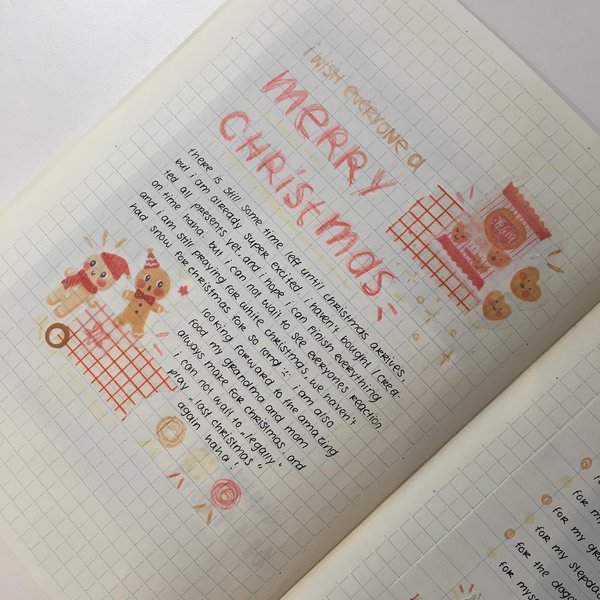 i WISH EVERYONE a
MERRY
CHRistmas
there is still some time left until christmas arrives,
but i am already super excited. i haven't bought / crea-
ted all presents yet and i hope i can finish everything
on time haha. but i can not wait to see everyones reaction
and i am still praying for white christmas. we haven't
had snow for christmas for so long :( i am also
looking forward to the amazing
food my grandma and mom
always make for christmas. and
i can not wait to „legally“
play „last christmas“
again haha!
for my
for my
for the
for